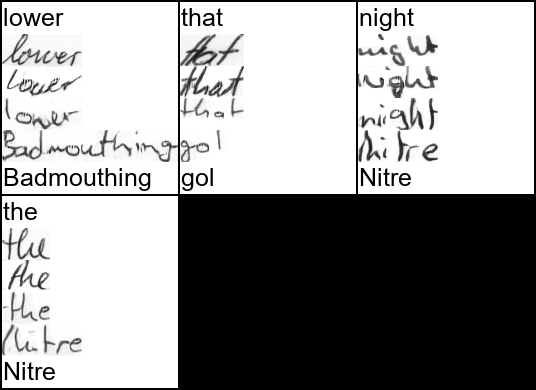 lower
lower
lower
lower
Badmouthing
Badmouthing
that
that
that
that
gol
gol
night
night
night
night
Nitre
Nitre
the
the
the
the
Nitre
Nitre